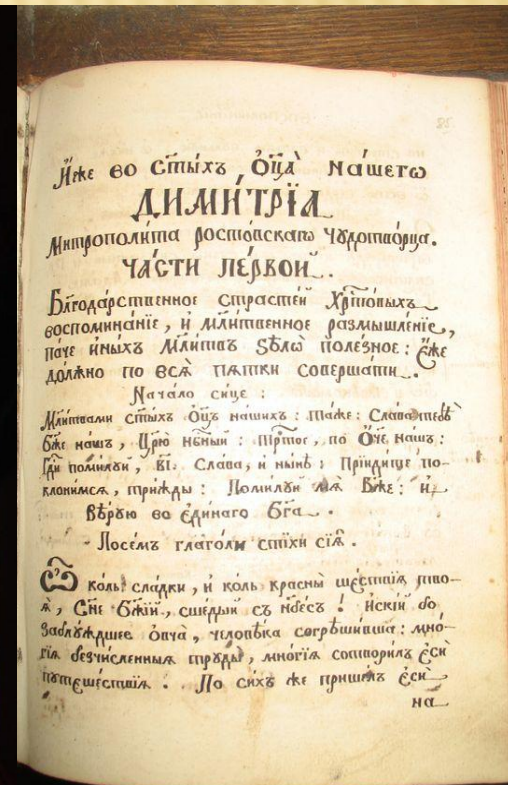 И҆́же во ст҃ы́хъ Ѻ҆ц҃а̀ на́шегѡ
ДИМИ́ТРЇА
Митрополи́та росто́вскагѡ чꙋдотво́рца.
ЧА́СТИ ПЕ́РВОЙ.
Бл҃года́рственное страсте́й Хрⷭ҇то́выхъ
воспомина́нїе, и҆ мл҃и́твенное размышле́нїе,
па́че и҆ны́хъ мл҃и́твъ ѕѣлѡ̀ поле́зное: Е҆́же
до́лжно по всѧ̑ пѧткѝ соверша́ти.
Нача́ло си́це:
Мл҃и́твами ст҃ы́хъ Ѻ҆ц҃ъ на́шихъ: та́же: Сла́ва тебѣ̀
Бж҃е на́шъ, Цр҃ю̀ нбⷭ҇ный: трⷭ҇тое, по Ѻ҆́ч҃е на́шъ:
Гдⷭ҇и поми́лꙋй, в҃і. Сла́ва, и҆ ны́нѣ: Прїиди́те по-
клони́мсѧ, три́жды: Поми́лꙋй мѧ̀ Бж҃е: и҆
Вѣ́рꙋю во є҆ди́наго Бг҃а.
Посе́мъ глаго́ли стїхѝ сїѧ̑.
Ѽ ко́ль сла́дки, и҆ ко́ль кра́сны ше́ствїѧ тво-
ѧ̑, Сн҃е Бж҃їй, сше́дый съ нб҃е́съ! И҆скі́й бо
заблꙋ́ждшее ѻ҆вча̀, человѣ́ка согрѣши́вша: мнѡ́-
гїѧ безчи́сленныѧ трꙋды̀, мнѡ́гїѧ сотвори́лъ є҆сѝ
пꙋтеше́ствїѧ. По си́хъ же прише́лъ є҆сѝ
на